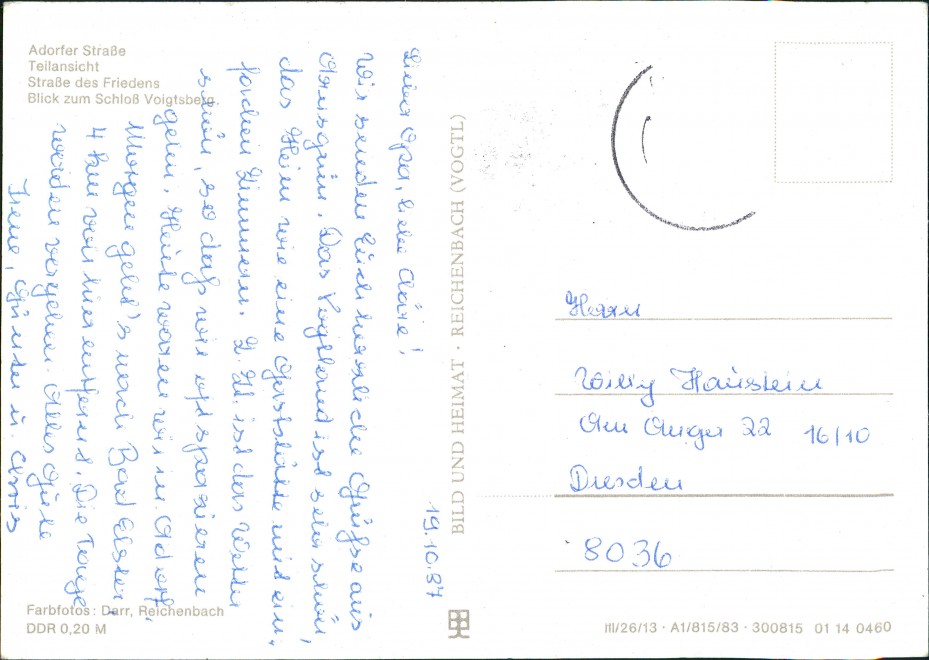 Adorfer Straße
Teilansicht
Straße des Friedens
Blick zum Schloß Voigtsberg.
19.10.87
Lieber Opa, liebe Cläre!
Wir senden Euch herzliche Grüße aus
das Vogtland ist sehr schön,
das Heim wie eine Gaststätte mit ein.
fachen Zimmern. Z. Zt. ist das Wetter
schön, so daß wir oft spazieren
gehn. Heute waren wir in Adorf,
Morgen geht's nach Bad Elster,
4 km von hier entfernt. Die Tage
werden vergehen. Alles Gute
Irene, Günter u.
BILD UND HEIMAT · REICHENBACH (VOGTL)
Herrn
Willy Haustein
Am Anger 22 16/10
Dresden
8036
Farbfotos: Darr, Reichenbach
DDR 0,20 M
III/26/13 · A1/815/83 · 300815 01 14 0460